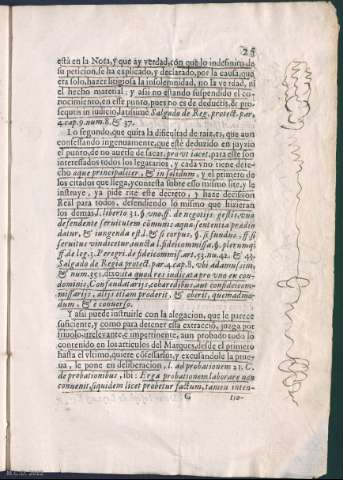 25
está en la Nota, y que ay verdad, con que lo indefinito de
su peticion, se ha explicado, y declarado, por la causa, que
era solo, hazer litigiosa la insolemnidad, no la verdad, ni
el hecho material; y assi no estando suspendido el co-
nocimiento, en este punto, pues no es de deductis, & pro-
sequtis in iudicio, latissimè Salgado de Reg. protect. par.
4. cap. 9. num. 8. & 37.
Lo segundo, que quita la dificultad de raiz, es, que aun
confessando ingenuamente, que esté deduzido en juyzio
el punto, de no auerse de sacar, prout iacet, para este son
interessados todos los legatarios, y cada vno tiene dere-
cho aque principaliter, & in solidum, y el primero de
los citados que llega, y contesta sobre esso mismo lite, y le
instruye, ya pide rite este decreto, y haze decission
Real para todos, defendiendo lo mismo que hizieran
los demas. l. liberto 31. §. vno. ff. de negotijs gestis, vna
defendente seruitutem cõmunis aqua, sententia præditi
datur, & iungenda est l. & si corpus, §. si fundus. ff. si
seruitus vindicetur, iuncta l. fideicommissa. §. plerumq;
ff. de leg. 3. Peregri. de fideicommis. art. 53. num. 42. & 43.
Salgado de Regia protect. par. 4. cap. 8. vbi ad amussim,
& num. 351. divisita quod res iudicata pro vno ex con-
dominis, Consaudatarijs, cohæredibus, aut confideicom-
missarijs, alijs etiam proderit, & oberit, quemadmo-
dum, & è conuerso.
Y assi puede instruirle con la alegacion, que le parece
suficiente, y como para detener esta extracciõ, juega por
friuolo, irrelevante, è impertinente, aun probado todo lo
contenido en los articulos del Marques, desde el primero
hasta el vltimo, quiere cõfessarlos, y excusandole la prue-
ua, le pone en deliberacion, l. ad probationem 21. C.
de probationibus, ibi: Erga probationem laborare non
convenit, siquidem licet probetur factum, tamen inten-
G
tio-